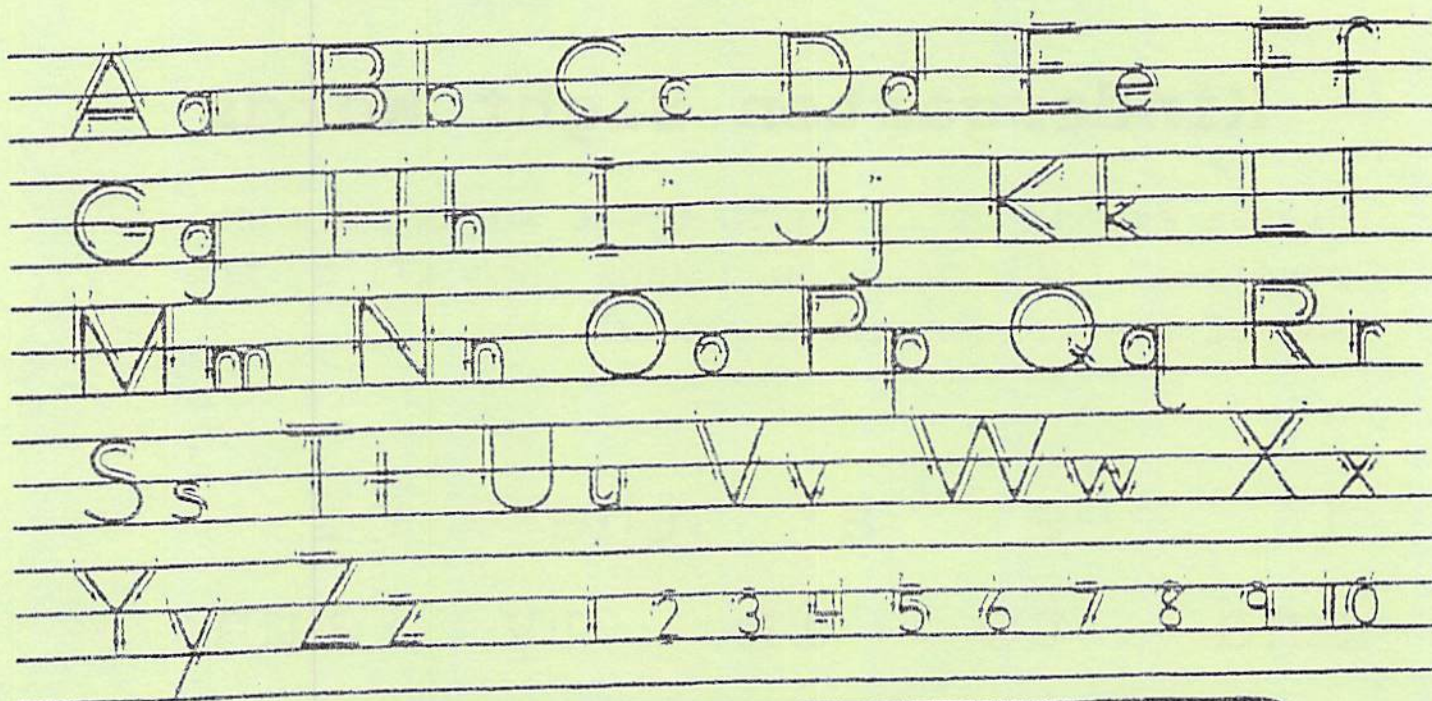 A a B b C c D d E e F f
G g H h I i J j K k L l
M m N n O o P p Q q R r
S s T t U u V v W w X x
Y y Z z 1 2 3 4 5 6 7 8 9 10